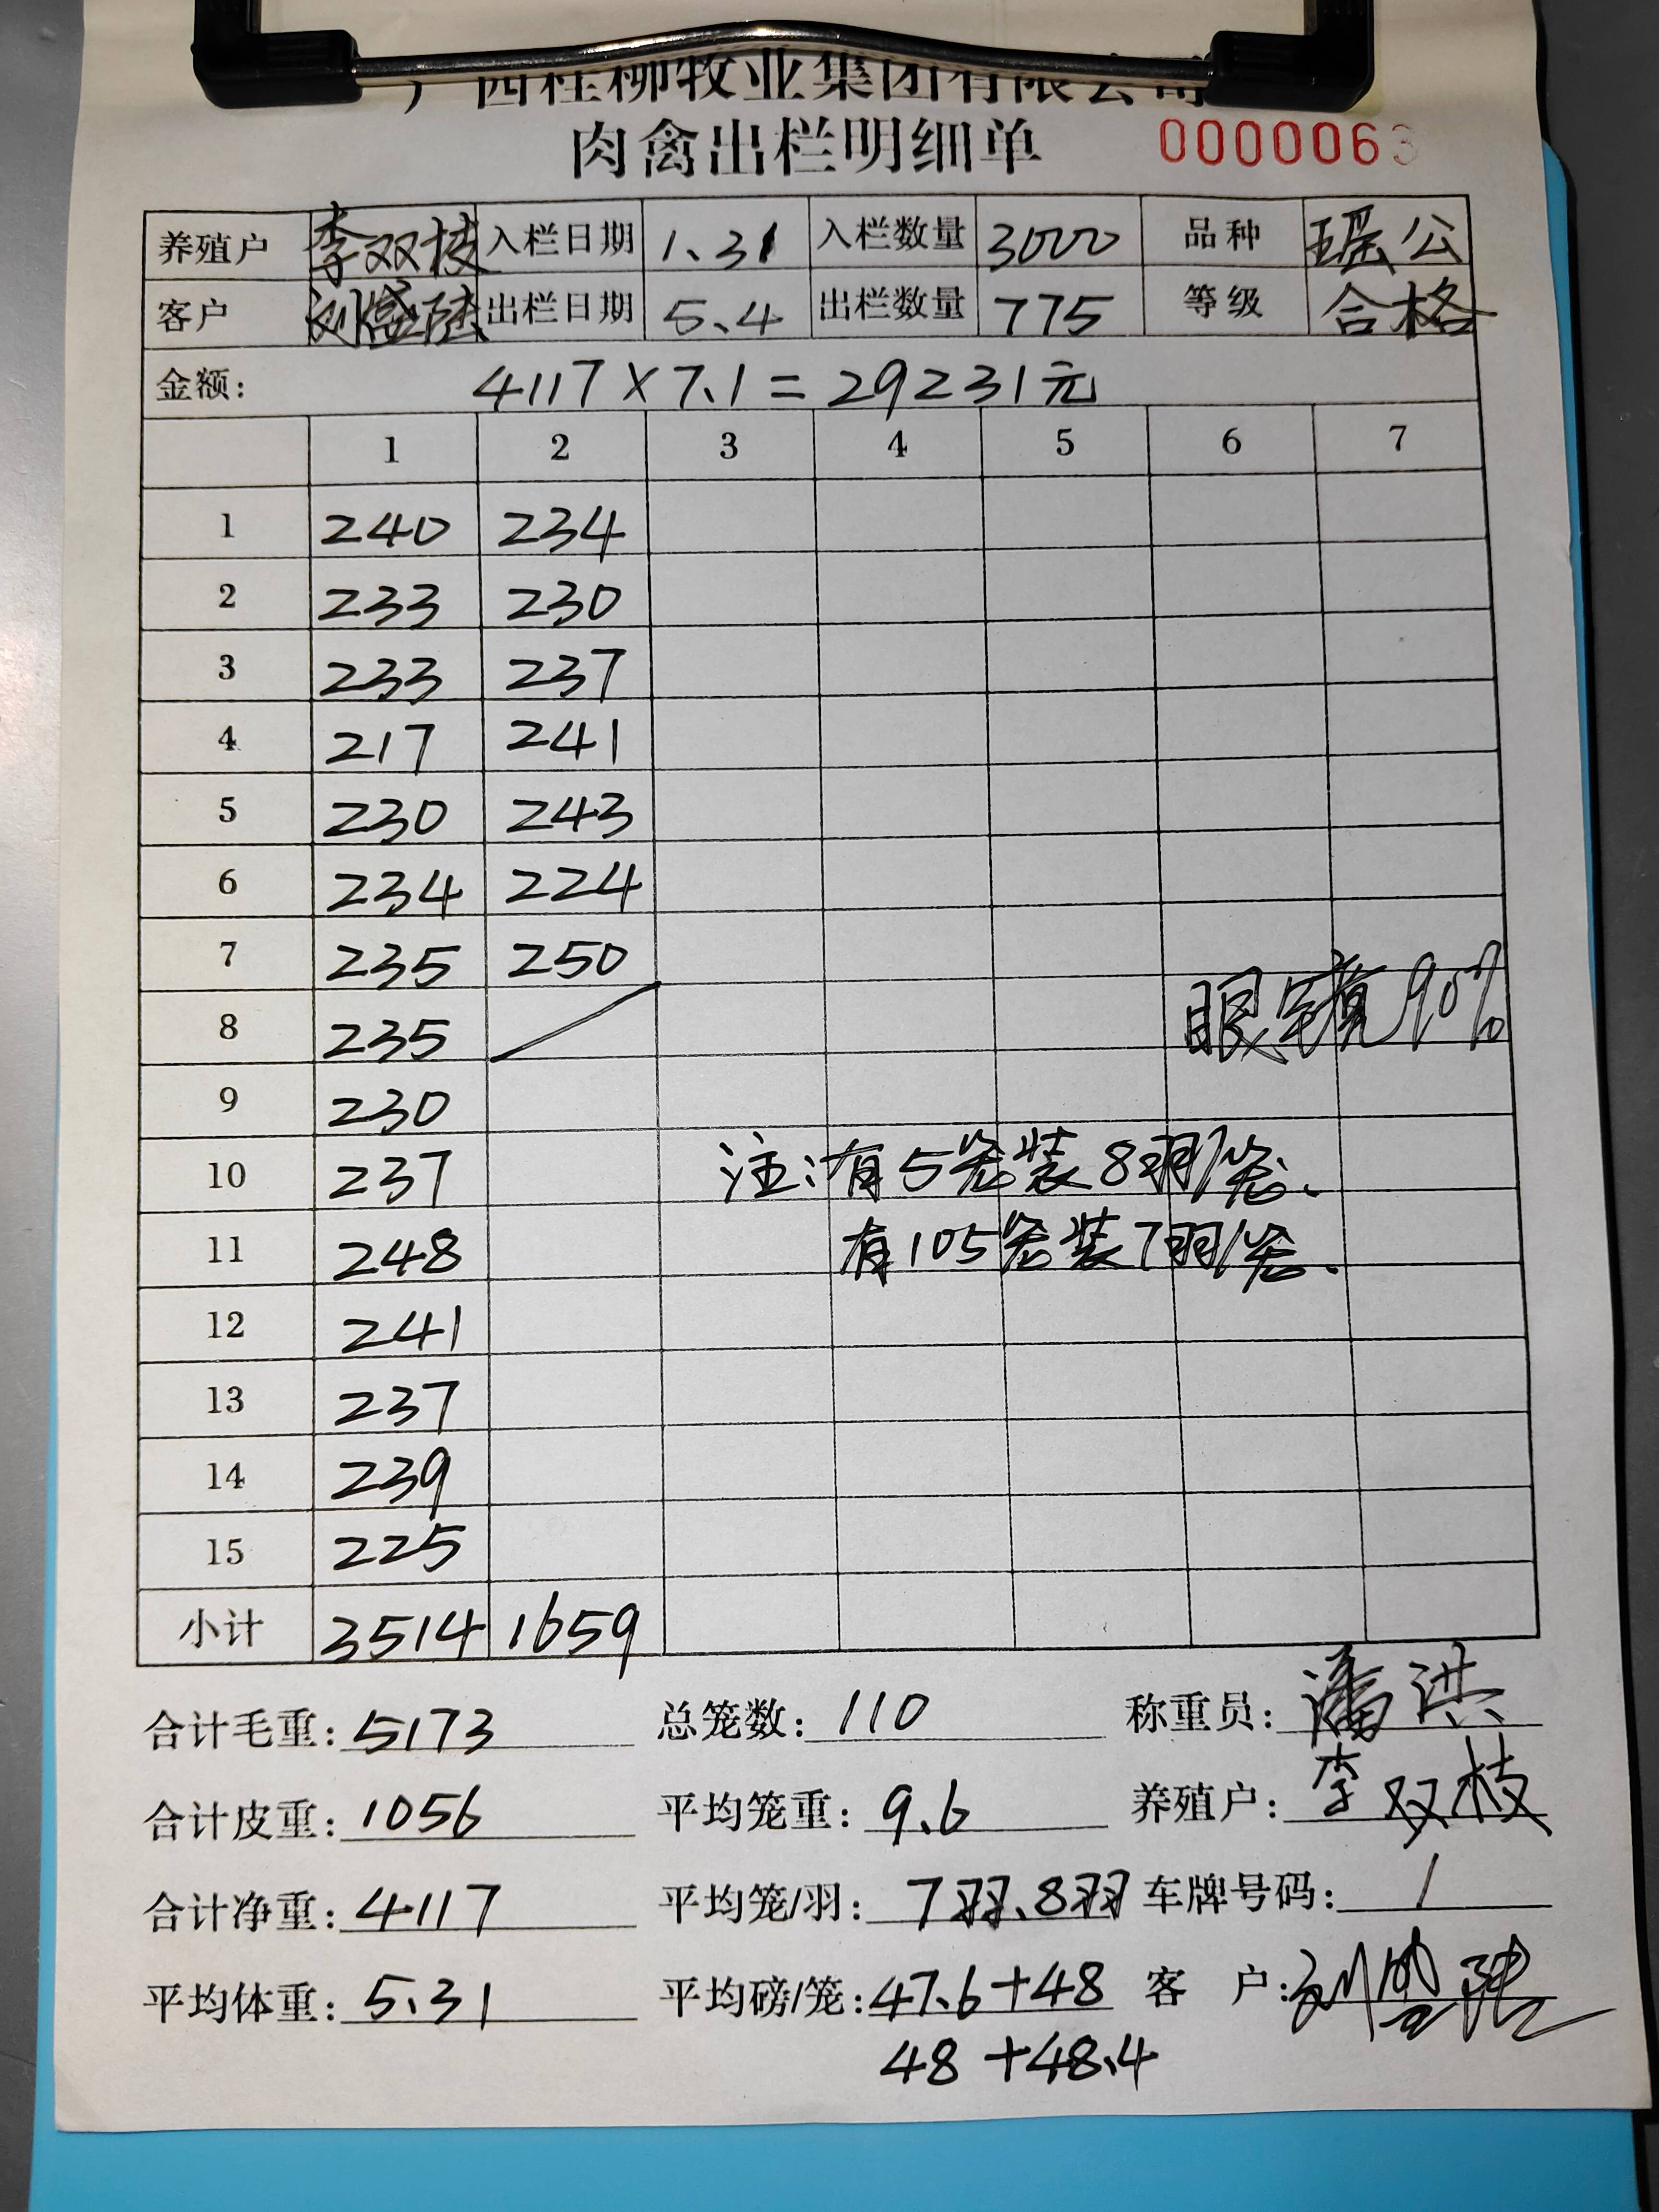 广西桂柳牧业集团有限公司
肉禽出栏明细单 0000063
养殖户 李双枝 入栏日期 1.31 入栏数量 3000 品种 瑶公
客户 出栏日期 5.4 出栏数量 775 等级 合格
金额: 4117×7.1=29231元
1 2 3 4 5 6 7
1 240 234
2 233 230
3 233 237
4 217 241
5 230 243
6 234 224
7 235 250
8 235 眼 90%
9 230
10 237 注:有5笼装8羽/笼、
11 248 有105笼装7羽/笼、
12 241
13 237
14 239
15 225
小计 3514 1659
合计毛重: 5173 总笼数: 110 称重员: 潘洪
合计皮重: 1056 平均笼重: 9.6 养殖户: 李双枝
合计净重: 4117 平均笼/羽: 7羽、8羽 车牌号码: /
平均体重: 5.31 平均磅/笼: 47.6+48 客 户:
48+48.4